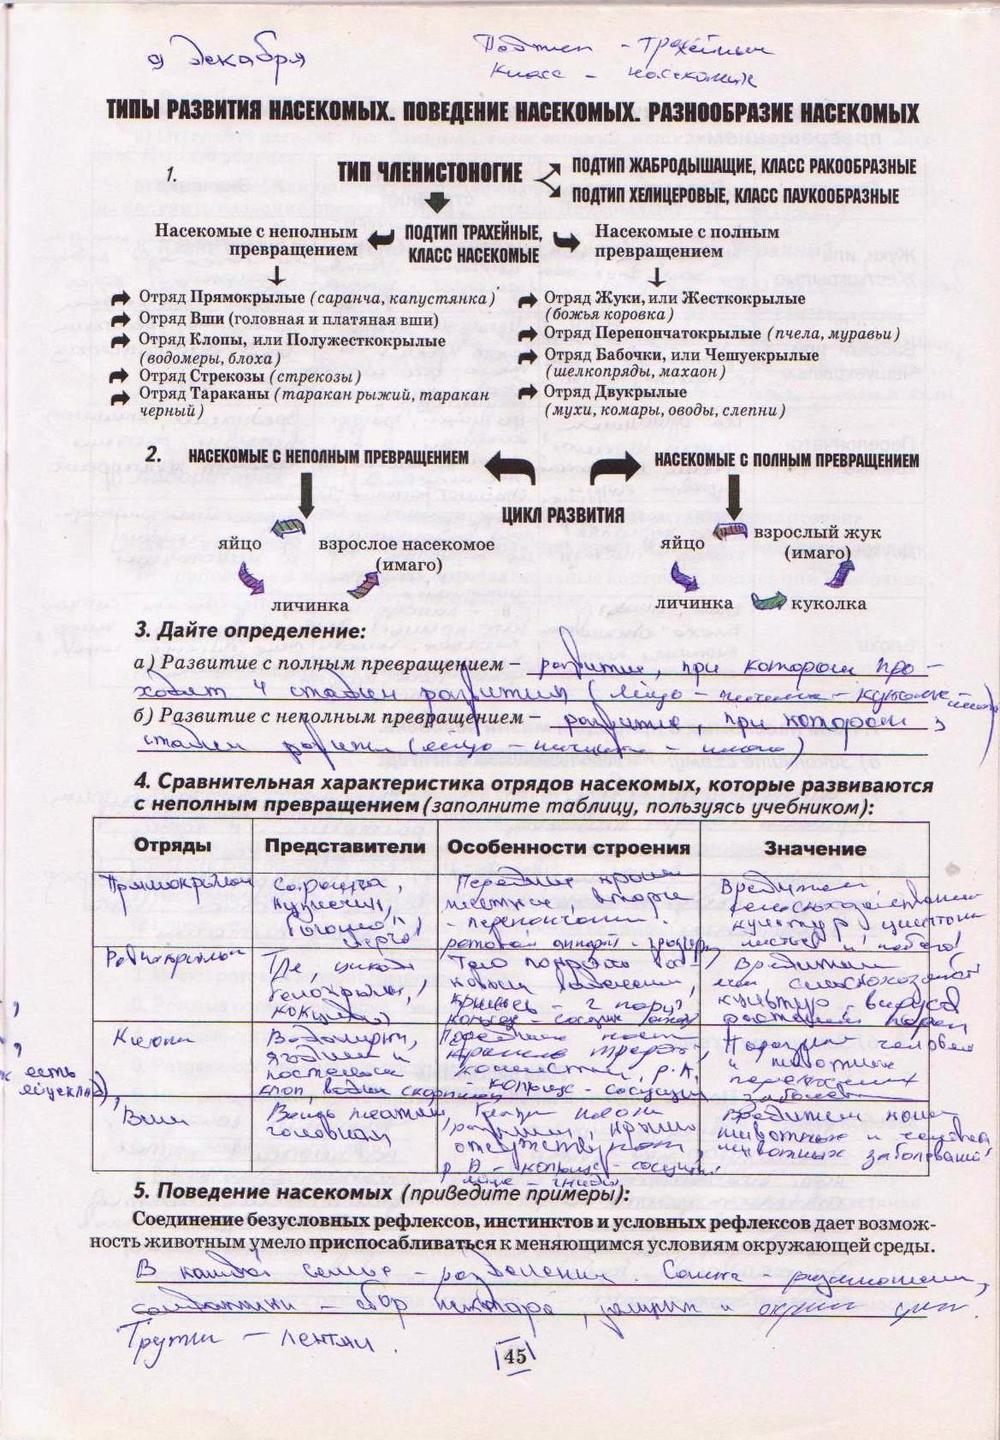 9 декабря
Подтип - Трахейные
Класс - насекомые
ТИПЫ РАЗВИТИЯ НАСЕКОМЫХ. ПОВЕДЕНИЕ НАСЕКОМЫХ. РАЗНООБРАЗИЕ НАСЕКОМЫХ
1.
ТИП ЧЛЕНИСТОНОГИЕ
ПОДТИП ЖАБРОДЫШАЩИЕ, КЛАСС РАКООБРАЗНЫЕ
ПОДТИП ХЕЛИЦЕРОВЫЕ, КЛАСС ПАУКООБРАЗНЫЕ
ПОДТИП ТРАХЕЙНЫЕ,
КЛАСС НАСЕКОМЫЕ
Насекомые с неполным
превращением
Отряд Прямокрылые (саранча, капустянка)
Отряд Вши (головная и платяная вши)
Отряд Клопы, или Полужесткокрылые
(водомеры, блоха)
Отряд Стрекозы (стрекозы)
Отряд Тараканы (таракан рыжий, таракан
черный)
Насекомые с полным
превращением
Отряд Жуки, или Жесткокрылые
(божья коровка)
Отряд Перепончатокрылые (пчела, муравьи)
Отряд Бабочки, или Чешуекрылые
(шелкопряды, махаон)
Отряд Двукрылые
(мухи, комары, оводы, слепни)
2.
НАСЕКОМЫЕ С НЕПОЛНЫМ ПРЕВРАЩЕНИЕМ
НАСЕКОМЫЕ С ПОЛНЫМ ПРЕВРАЩЕНИЕМ
ЦИКЛ РАЗВИТИЯ
яйцо
взрослое насекомое
(имаго)
личинка
яйцо
взрослый жук
(имаго)
личинка
куколка
3. Дайте определение:
а) Развитие с полным превращением – развитие, при котором про-
ходят 4 стадии развития (яйцо - личинка - куколка - имаго)
б) Развитие с неполным превращением – развитие, при котором 3
стадии (яйцо - личинка - имаго)
4. Сравнительная характеристика отрядов насекомых, которые развиваются
с неполным превращением (заполните таблицу, пользуясь учебником):
Отряды
Представители
Особенности строения
Значение
Прямокрылые
Саранча,
кузнечик,
Передние крылья
жесткие, вторые
- перепончатые.
ротовой аппарат -
Вредители
сельскохозяйственных
культур
листья и
Равнокрылые
Тли, цикады
белокрылки,
Тело покрыто
крыльев - 2 пары,
колюще - сосущие
Вредители
сельскохозяй
культур - вирусы
растений
Клопы
Водомерки,
ягодный и
постельный
клоп, водян скорпион
Передние
крыльев
р.А.
- колюще - сосущий
и животных
заболевания
есть
яйцеклад),
Вши
Вошь платяная,
головная
крылья
отсутствуют,
р. А - колюще - сосущий
яйца - гниды
Вредители
животных и человека
заболеваний
5. Поведение насекомых (приведите примеры):
Соединение безусловных рефлексов, инстинктов и условных рефлексов дает возмож-
ность животным умело приспосабливаться к меняющимся условиям окружающей среды.
В каждой семье - разделения. Самка - размножение,
- сбор нектара, и
Трутни - лентяи.
45